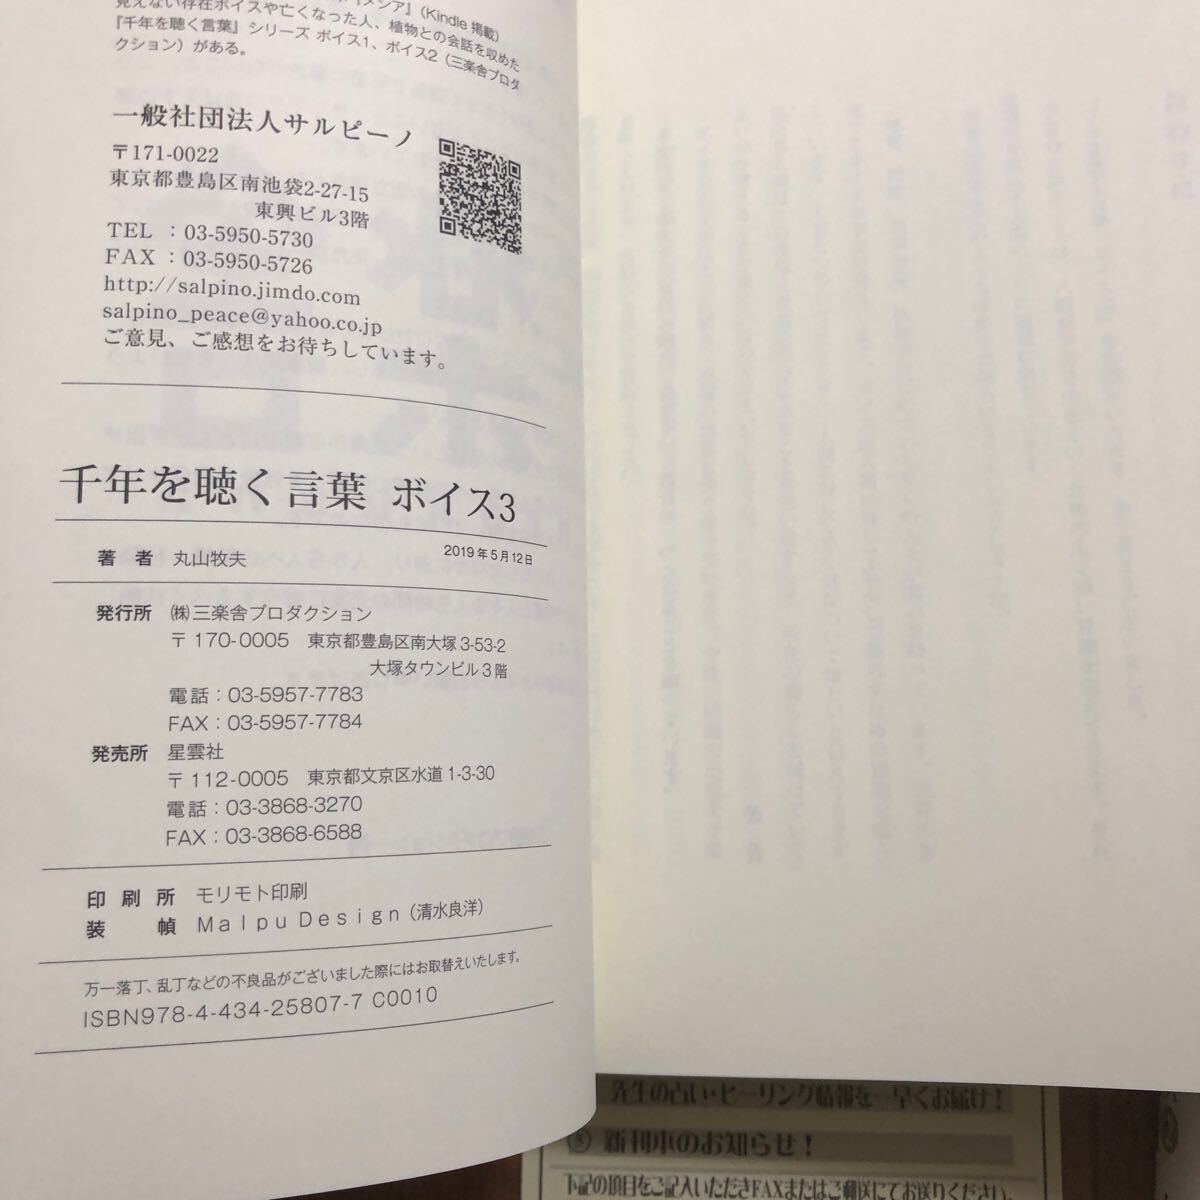 『メシア』（Kindle 掲載）
見えない存在ボイスや亡くなった人、植物との会話を収めた
『千年を聴く言葉』シリーズ ボイス1、ボイス2（三楽舎プロダ
クション）がある。
一般社団法人サルピーノ
〒171-0022
東京都豊島区南池袋2-27-15
東興ビル3階
TEL ：03-5950-5730
FAX ：03-5950-5726
http://salpino.jimdo.com
salpino_peace@yahoo.co.jp
ご意見、ご感想をお待ちしています。
千年を聴く言葉 ボイス3
2019年5月12日
著 者 丸山牧夫
発行所 ㈱三楽舎プロダクション
〒170-0005 東京都豊島区南大塚3-53-2
大塚タウンビル3階
電話：03-5957-7783
FAX：03-5957-7784
発売所 星雲社
〒112-0005 東京都文京区水道1-3-30
電話：03-3868-3270
FAX：03-3868-6588
印 刷 所 モリモト印刷
装 幀 Malpu Design（清水良洋）
万一落丁、乱丁などの不良品がございました際にはお取替えいたします。
ISBN978-4-434-25807-7 C0010
先生の占い・ヒーリング情報を一早くお届け！
⑤ 新刊本のお知らせ！
下記の項目をご記入いただきFAXまたはご郵送にてお送りください。